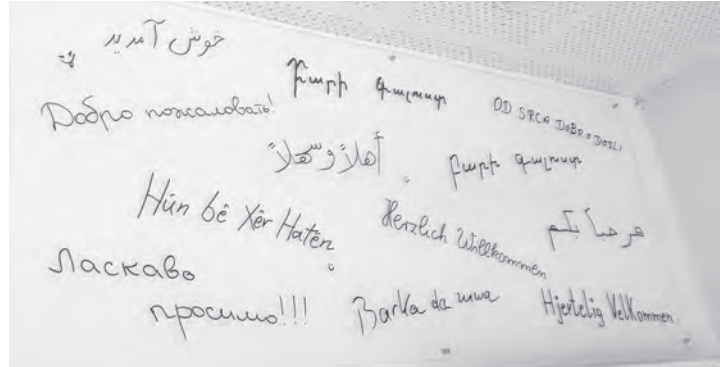 خوش آمدید
Добро пожаловать!
Բարի գալուստ
OD SRCA DOBRO DOŠLI
أهلاً وسهلاً
Բարի գալուստ
Hûn bê Xêr Hatên
Herzlich Willkommen
مرحباً بكم
Ласкаво
просимо!!!
Barka da zuwa
Hjertelig Velkommen